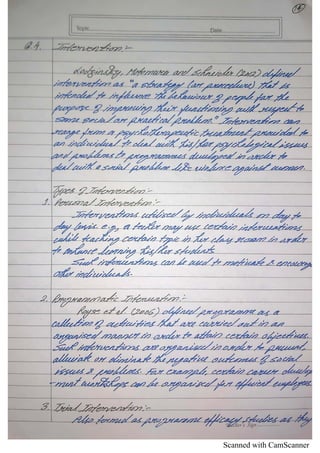 18
Topic
Date
Q.4. Intervention:-
Lodzinsky, Motomura and Schneider (2012) defined
intervention as "a strategy (or procedure) that is
intended to influence the behaviour of people for the
purpose of improving their functioning with respect to
some social or practical problem". Intervention can
range from a psychotherapeutic treatment provided to
an individual to deal with his/her psychological issues
and problems to programmes developed in order to
deal with a social problem like violence against women.
Types of Intervention:-
1. Personal Intervention:-
Interventions utilised by individuals on day to
day basis. e.g., a teacher may use certain interventions
while teaching certain topic in her class room in order
to enhance learning his/her students.
Such interventions can be used to motivate & encourage
other individuals.
2. Programmatic Intervention:-
Royse et al (2016) defined programme as a
collection of activities that are carried out in an
organised manner in order to attain certain objectives.
Such interventions are organised in order to prevent,
alleviate or eliminate the negative outcomes of social
issues & problems. For example, certain career develop
-ment workshops can be organised for effective employees
3. Trial Intervention:-
Also termed as programme efficacy studies as they
Scanned with CamScanner